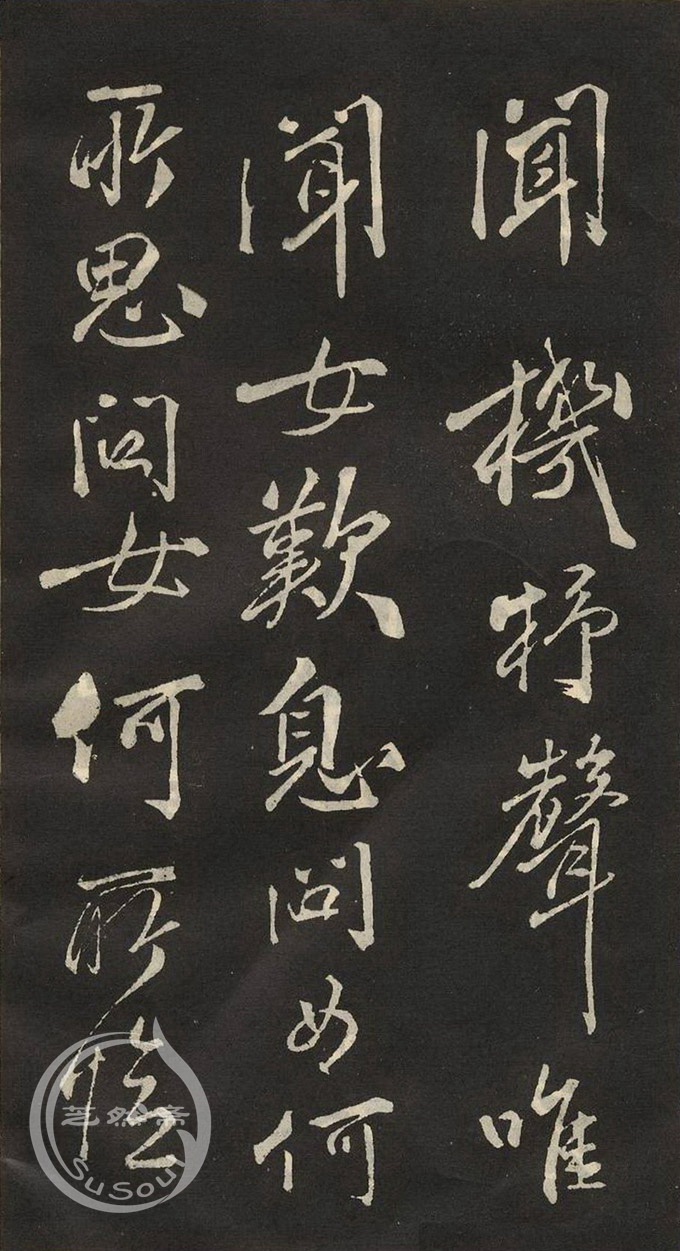 聞機杼聲唯
聞女歎息問女何
所思問女何所憶
芝然斋
SuSoul